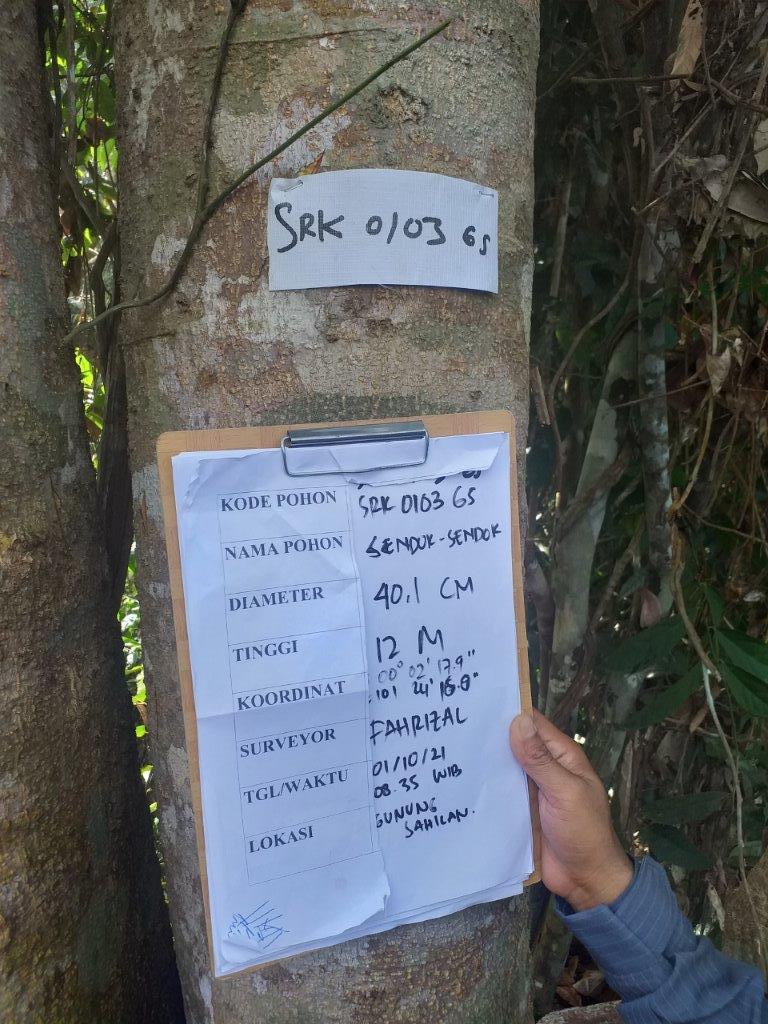 SRK 0103 GS
KODE POHON SRK 0103 GS
NAMA POHON SENDUK-SENDOK
DIAMETER 40.1 CM
TINGGI 12 M
KOORDINAT 00° 02' 17.9"
101 24'
SURVEYOR FAHRIZAL
TGL/WAKTU 01/10/21
08.35 WIB
LOKASI GUNUNG
SAHILAN.